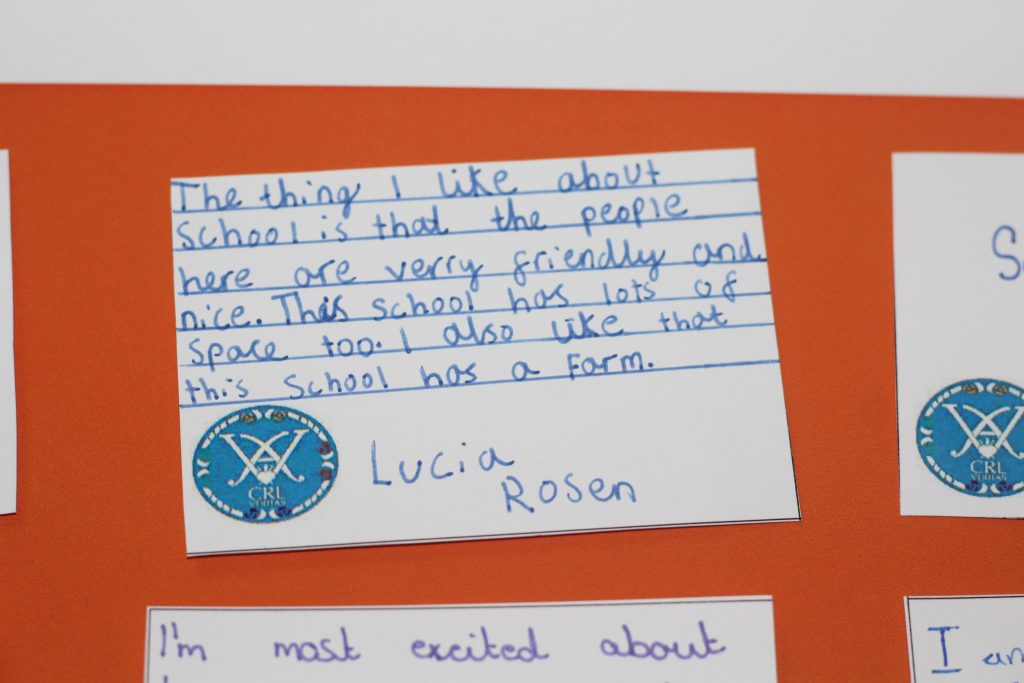 The thing I like about
School is that the people
here are verry friendly and
nice. This school has lots of
space too. I also like that
this School has a Farm.
CRL
VERITAS
Lucia
Rosen
S
CRL
I'm most excited about
I am